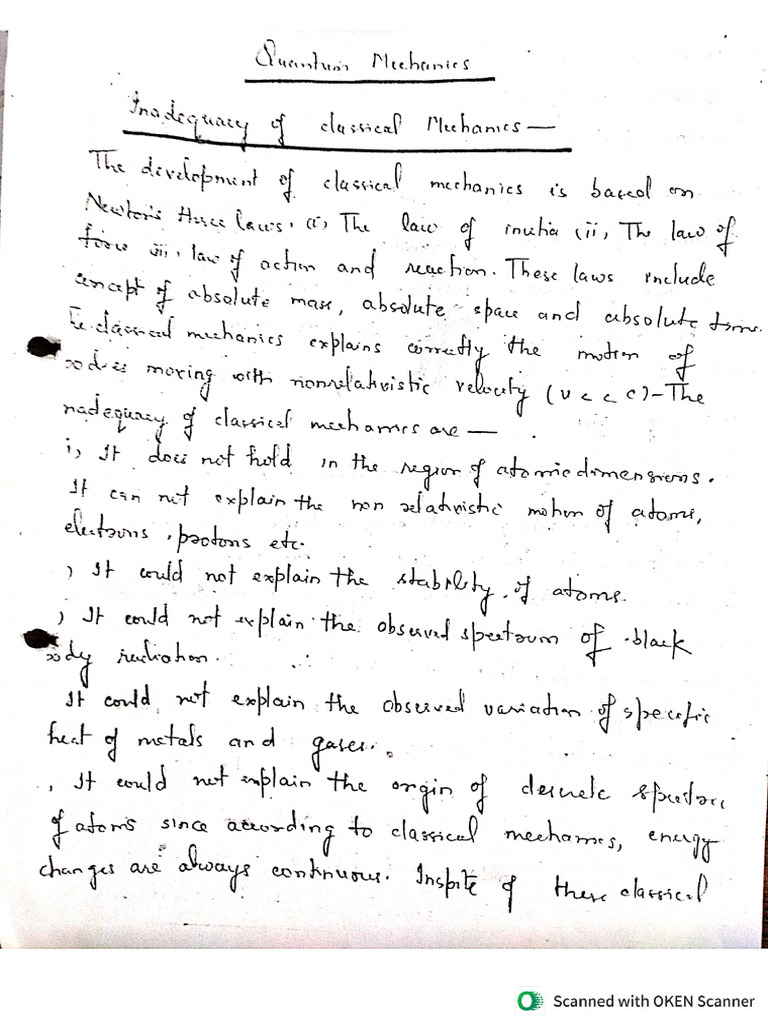 Quantum Mechanics
Inadequacy of classical Mechanics —
The development of classical mechanics is based on
Newton's three laws. (i) The law of inertia (ii) The law of
force iii, law of action and reaction. These laws include
concept of absolute mass, absolute space and absolute time.
classical mechanics explains correctly the motion of
moving with nonrelativistic velocity (v << c) - The
nadequacy of classical mechanics are —
i, It does not hold in the region of atomic dimensions.
It can not explain the non relativistic motion of atoms,
electrons, protons etc.
) It could not explain the stability of atoms.
) It could not explain the observed spectrum of black
ody radiation.
It could not explain the observed variation of specific
heat of metals and gases.
, It could not explain the origin of descrete spectra
of atoms since according to classical mechanics, energy
changes are always continuous. Inspite of these classical
Scanned with OKEN Scanner